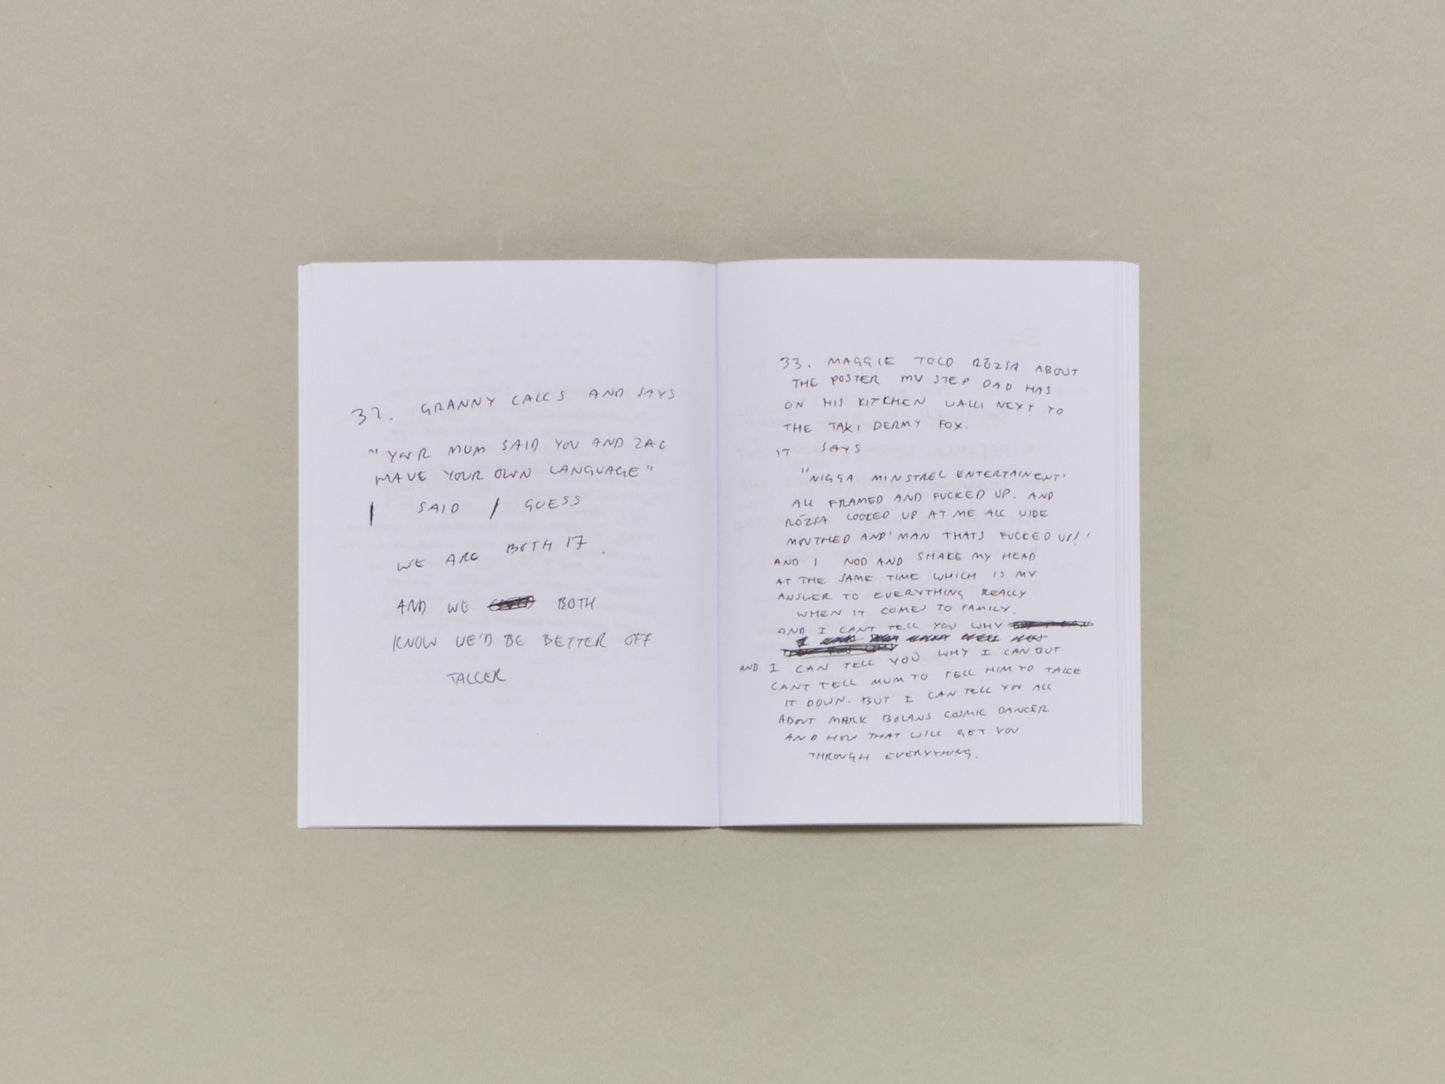 32. GRANNY CALLS AND SAYS
"YOUR MUM SAID YOU AND ZAC
HAVE YOUR OWN LANGUAGE"
I SAID I GUESS
WE ARE BOTH 17.
AND WE BOTH
KNOW WE'D BE BETTER OFF
TALLER
33. MAGGIE TOLD RÓZSA ABOUT
THE POSTER MY STEP DAD HAS
ON HIS KITCHEN WALL NEXT TO
THE TAXI DERMY FOX.
IT SAYS
"NIGGA MINSTREL ENTERTAINENT'
ALL FRAMED AND FUCKED UP. AND
RÓZSA LOOKED UP AT ME ALL WIDE
MOUTHED AND 'MAN THATS FUCKED UP!'
AND I NOD AND SHAKE MY HEAD
AT THE SAME TIME WHICH IS MY
ANSWER TO EVERYTHING REALLY
WHEN IT COMES TO FAMILY.
AND I CANT TELL YOU WHY
AND I CAN TELL YOU WHY I CAN BUT
CANT TELL MUM TO TELL HIM TO TAKE
IT DOWN. BUT I CAN TELL YOU ALL
ABOUT MARK BOLANS COSMIC DANCER
AND HOW THAT WILL GET YOU
THROUGH EVERYTHING.